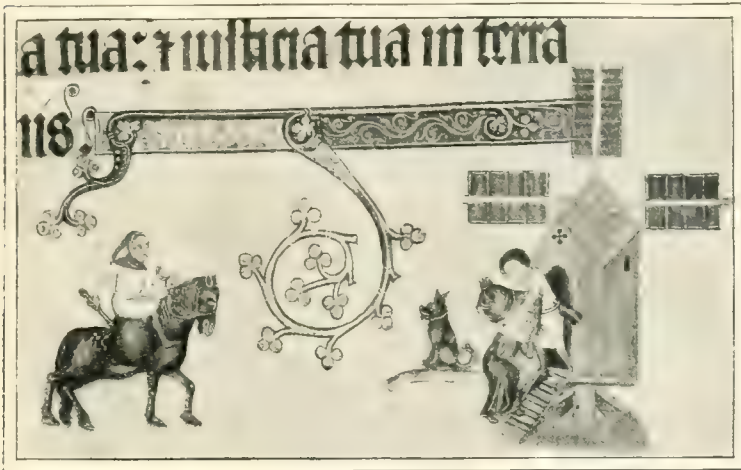 a tua: ⁊ iusticia tua in terra
us.